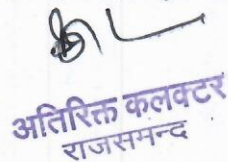 अतिरिक्त कलक्टर
राजसमन्द